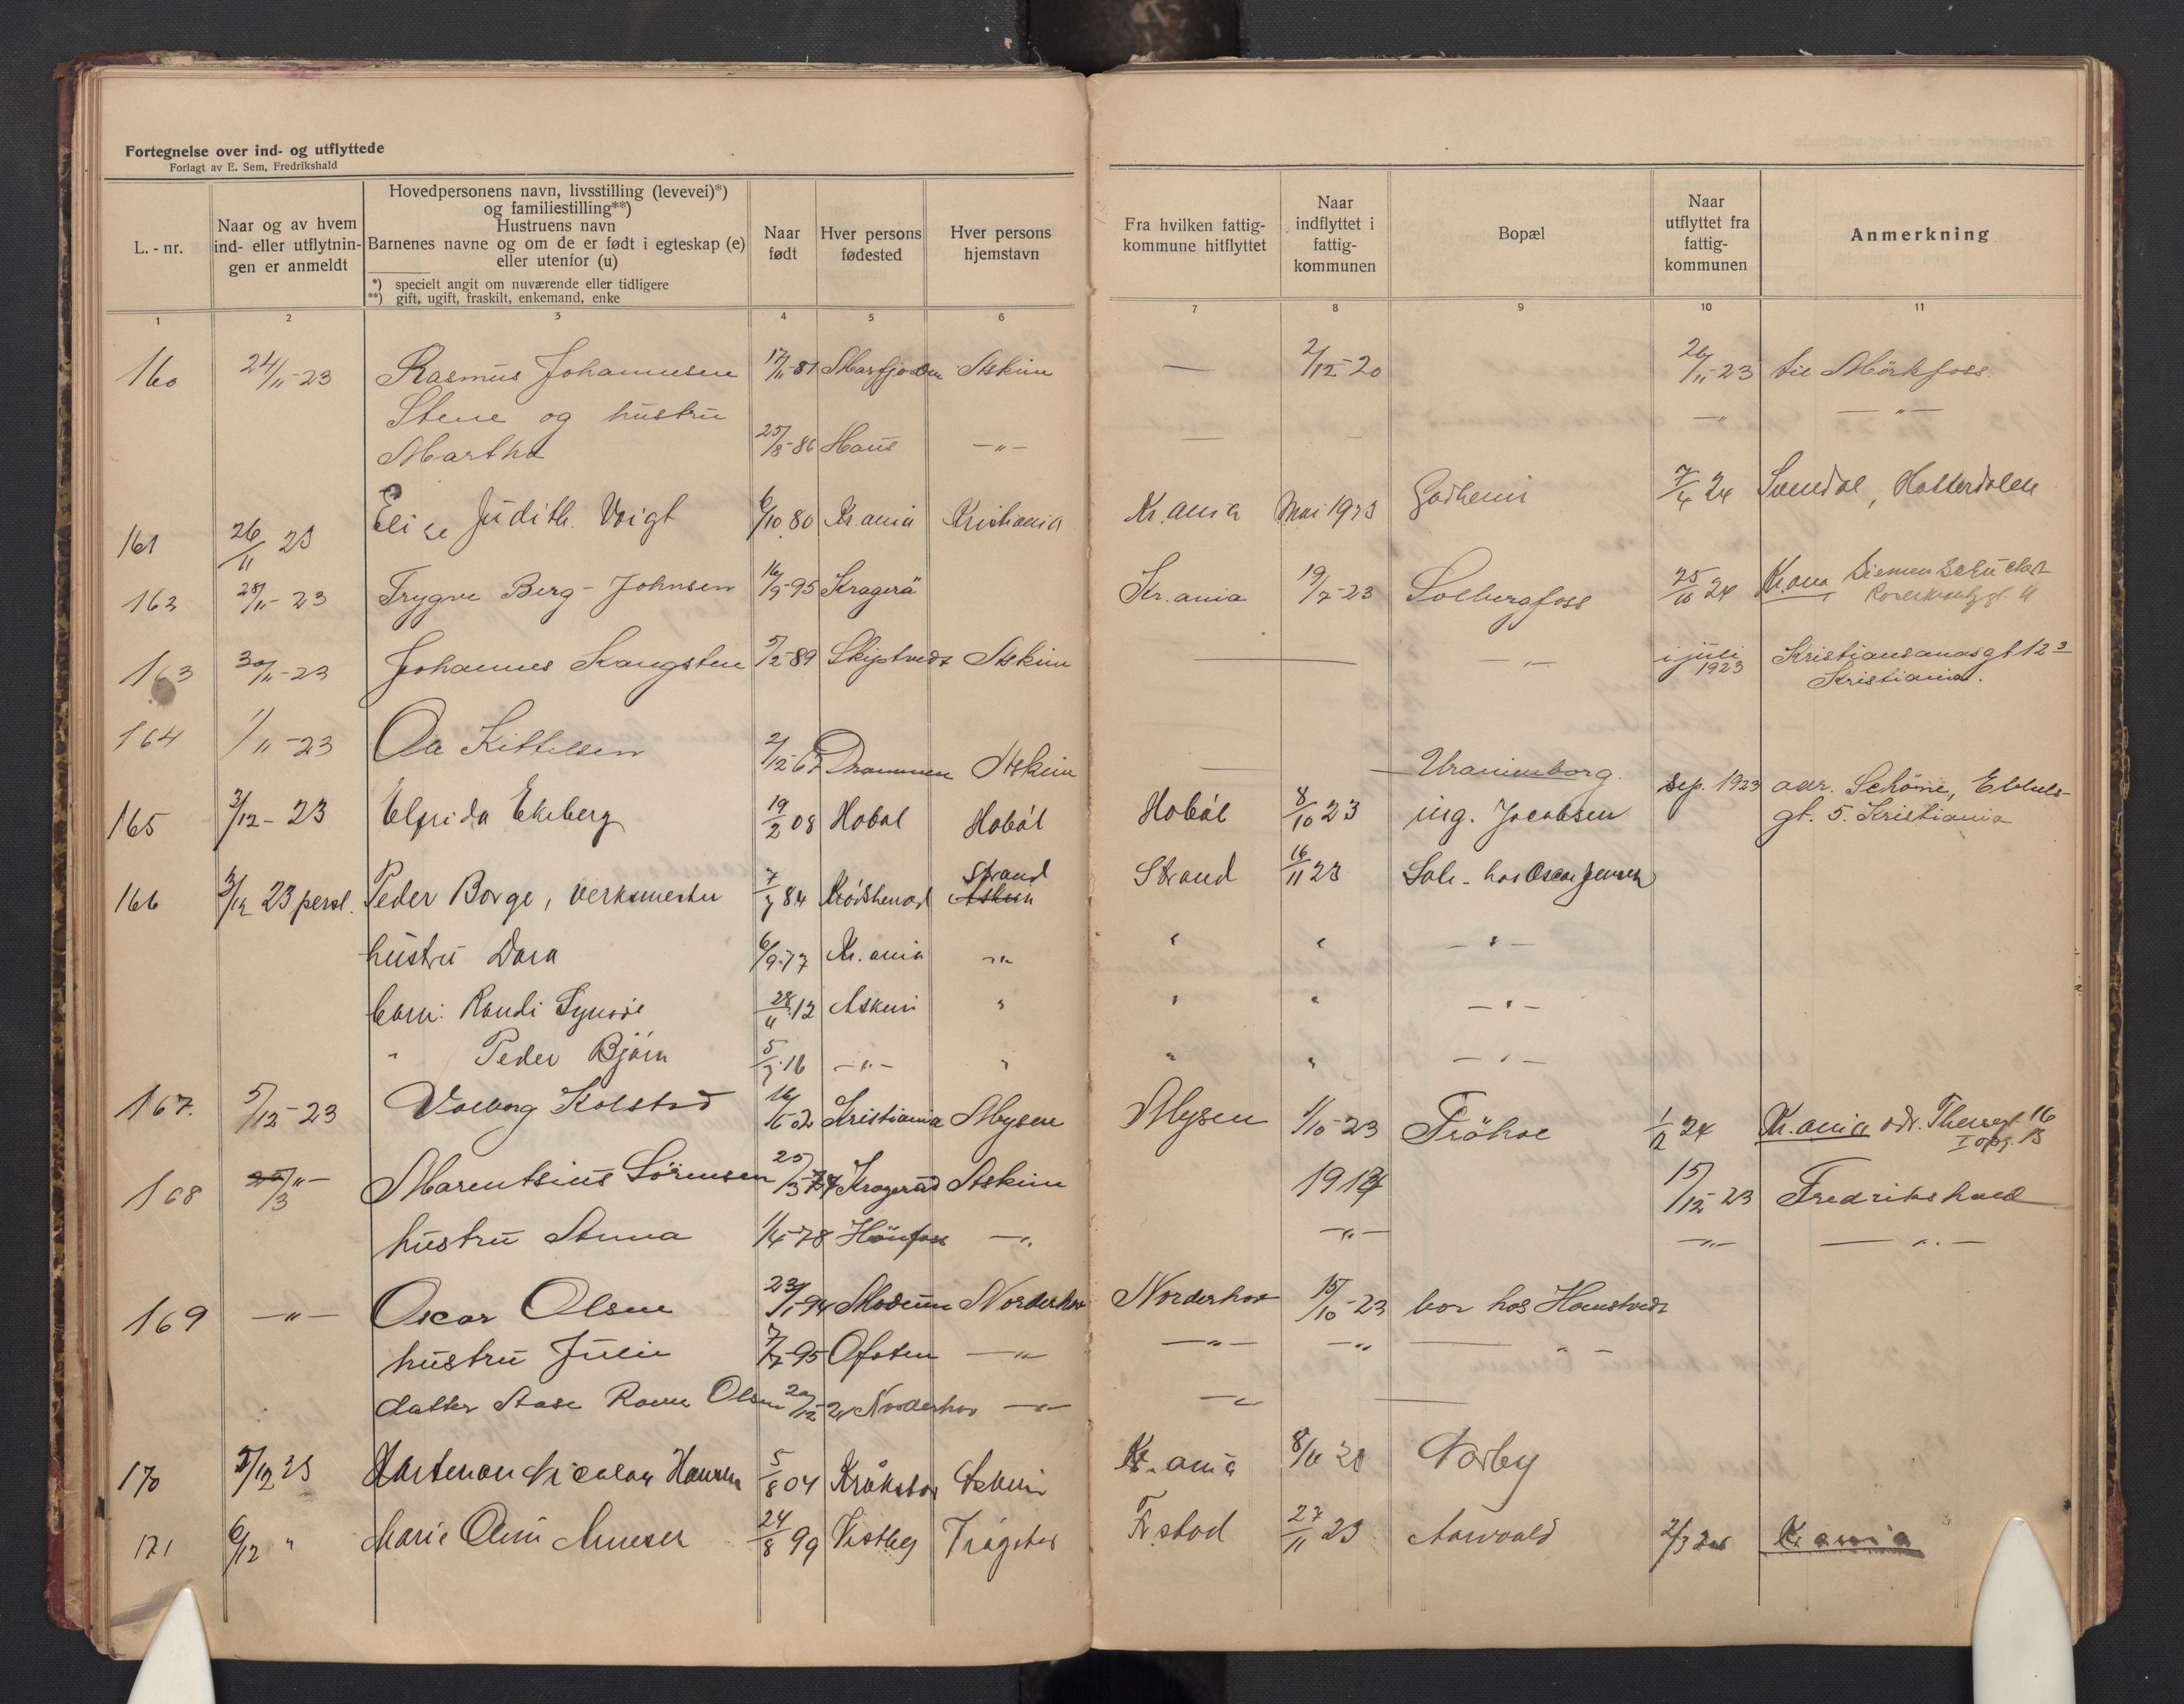 Fortegnelse over ind- og utflyttede
Forlagt av E. Sem, Fredrikshald
L. - nr.
Naar og av hvem ind- eller utflytnin- gen er anmeldt
Hovedpersonens navn, livsstilling (levevei)*) og familiestilling**)
Hustruens navn
Barnenes navne og om de er født i egteskap (e) eller utenfor (u)
*) specielt angit om nuværende eller tidligere
**) gift, ugift, fraskilt, enkemand, enke
Naar født
Hver persons fødested
Hver persons hjemstavn
Fra hvilken fattig- kommune hitflyttet
Naar indflyttet i fattig- kommunen
Bopæl
Naar utflyttet fra fattig- kommunen
Anmerkning
1 2 3 4 5 6 7 8 9 10 11
160 24/11-23 Rasmus Johannesen 17/11-81 Askim — 2/12-20 26/11-23 til Mörkfoss
Stene og hustru —"— —"—
Martha 25/8-86 Haus —"— —
161 26/11 23 Elise Judith Voigt 6/10 80 Kr.ania Kristiania Kr.ania Mai 1923 7/4 24
162 28/11-23 Trygve Berg-Johnsen 16/9-95 Kragerö Kr.ania 19/7-23 Solbergfoss 25/10 24 Kr.ania
163 30/11-23 Johannes Langsten 5/2-89 Skiptvedt Askim — —"— i juli 1923 Kristiansandsgt 12 3
Kristiania.
164 1/11-23 Ola Kittelsen 2/12-67 Drammen Askim — Uranienborg. sep. 1923 adr. Schöne,
gt. 5. Kristiania
165 3/12-23 Elfrida Ekeberg 19/2 08 Hobøl Hobøl Hobøl 8/10 23 ing. Jacobsen
166 3/12 23 persl. Peder Borge, verksmester 7/7 84 Krødsherad Strand Askim Strand 16/11 23 hos Oscar Jensen
hustru Dora 6/9-77 Kr.ania " " " —"—
barn: Randi Synøve 28/11 12 Askim " " " —"—
" Peder Bjørn 5/7 16 —"— " " " —"—
167. 5/12-23 Valborg Kolstad 16/5-02 Kristiania Mysen Mysen 1/10-23 Fröhoe 1/2 24 Kr.ania adr. Theresgt 16
I opg. 13
168 25/3 —"— Marentsius Sörensen 25/3-74 Kragerö Askim 1917 15/12-23 Fredrikshald
hustru Anna 1/4-78 Hönefoss —"— —"— —"— —"—
169 —"— Oscar Olsen 23/1-94 Modum Norderhov Norderhov 15/10-23 bor hos Hamstvedt
hustru Julie 7/7-95 Ofoten —"— —"— —"— —"—
datter Aase Olsen 20/12-21 Norderhov —"— —"— —
170 5/12 23 Hartman Nicolay Hansen 5/8 04 Kråkstad Askim Kr.ania 8/11 23 Norby
171 6/12 " Marie 24/8 99 Vestby Trøgstad Fr.stad 27/11 23 2/3 24 Kr.ania